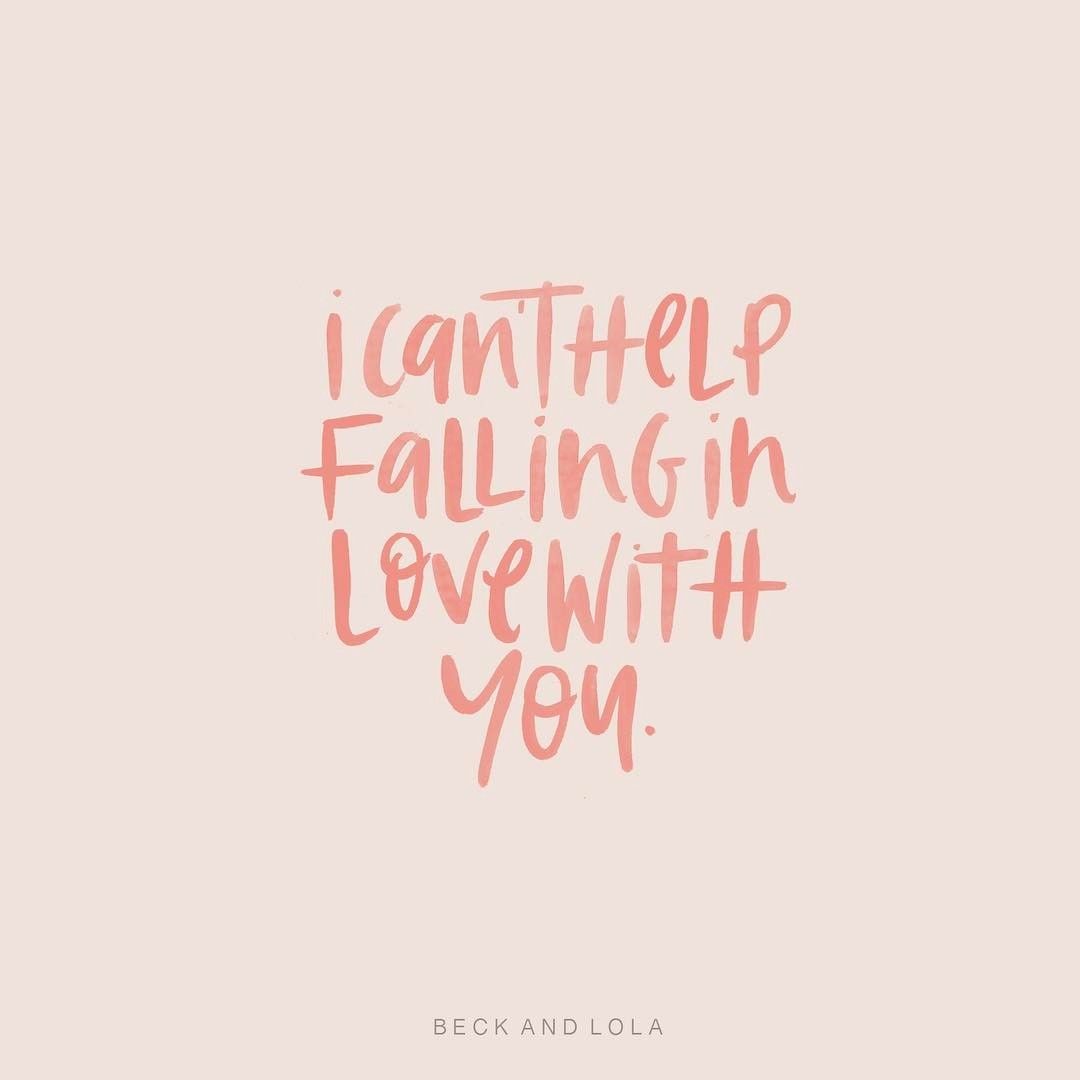 i can't Help
Falling in
Love with
you.
BECK AND LOLA